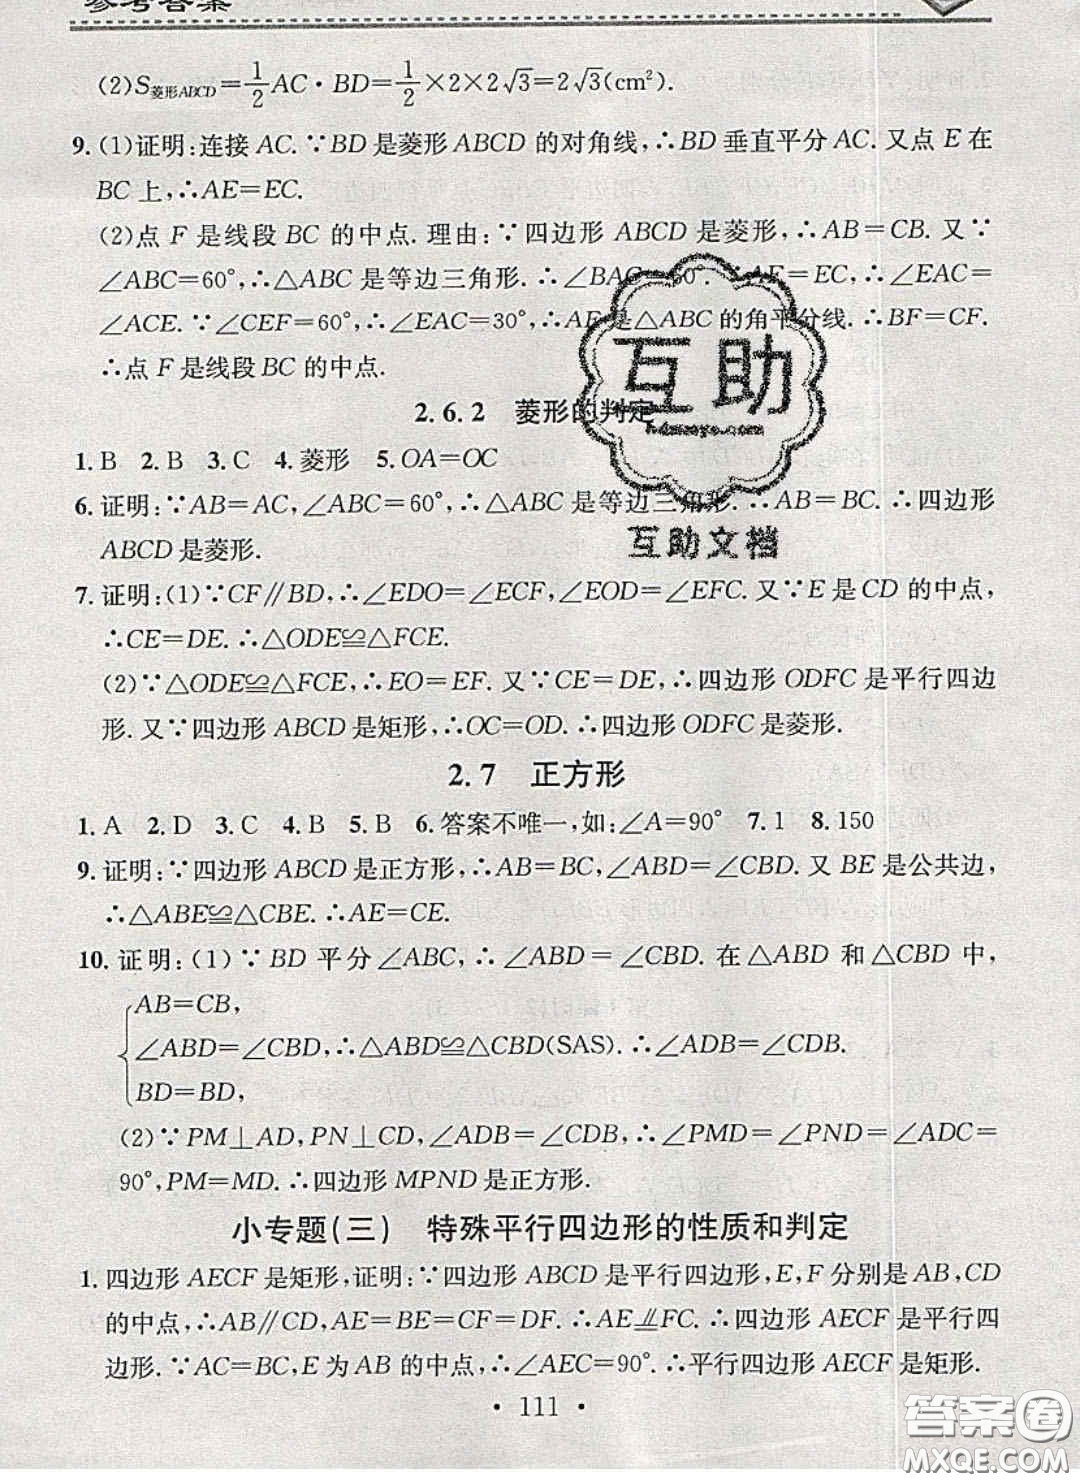 参考答案
(2)S菱形ABCD=1/2AC·BD=1/2×2×2√3=2√3(cm²).
9. (1)证明:连接 AC. ∵BD是菱形 ABCD 的对角线,∴BD垂直平分 AC. 又点 E 在
BC上,∴AE=EC.
(2)点 F 是线段 BC 的中点. 理由:∵四边形 ABCD 是菱形,∴AB=CB. 又∵
∠ABC=60°,∴△ABC是等边三角形. ∴∠BAC=60°. ∵AE=EC,∴∠EAC=
∠ACE. ∵∠CEF=60°,∴∠EAC=30°,∴AE是△ABC的角平分线. ∴BF=CF.
∴点 F 是线段 BC 的中点.
2.6.2 菱形的判定
1. B 2. B 3. C 4. 菱形 5. OA=OC
6. 证明:∵AB=AC,∠ABC=60°,∴△ABC是等边三角形. ∴AB=BC. ∴四边形
ABCD是菱形.
7. 证明:(1)∵CF∥BD,∴∠EDO=∠ECF,∠EOD=∠EFC. 又∵E是CD的中点,
∴CE=DE. ∴△ODE≌△FCE.
(2)∵△ODE≌△FCE,∴EO=EF. 又∵CE=DE,∴四边形 ODFC 是平行四边
形. 又∵四边形 ABCD 是矩形,∴OC=OD. ∴四边形 ODFC 是菱形.
2.7 正方形
1. A 2. D 3. C 4. B 5. B 6. 答案不唯一,如:∠A=90° 7. 1 8. 150
9. 证明:∵四边形 ABCD 是正方形,∴AB=BC,∠ABD=∠CBD. 又 BE 是公共边,
∴△ABE≌△CBE. ∴AE=CE.
10. 证明:(1)∵BD 平分∠ABC,∴∠ABD=∠CBD. 在△ABD 和△CBD 中,
AB=CB,
∠ABD=∠CBD,∴△ABD≌△CBD(SAS). ∴∠ADB=∠CDB.
BD=BD,
(2)∵PM⊥AD,PN⊥CD,∠ADB=∠CDB,∴∠PMD=∠PND=∠ADC=
90°,PM=MD. ∴四边形 MPND 是正方形.
小专题(三) 特殊平行四边形的性质和判定
1. 四边形 AECF 是矩形,证明:∵四边形 ABCD 是平行四边形,E,F 分别是AB,CD
的中点,∴AB∥CD,AE=BE=CF=DF. ∴AE⫽FC. ∴四边形 AECF 是平行四
边形. ∵AC=BC,E 为 AB 的中点,∴∠AEC=90°. ∴平行四边形 AECF 是矩形.
· 111 ·
互助
互助文档
答案圈
MXQE.COM